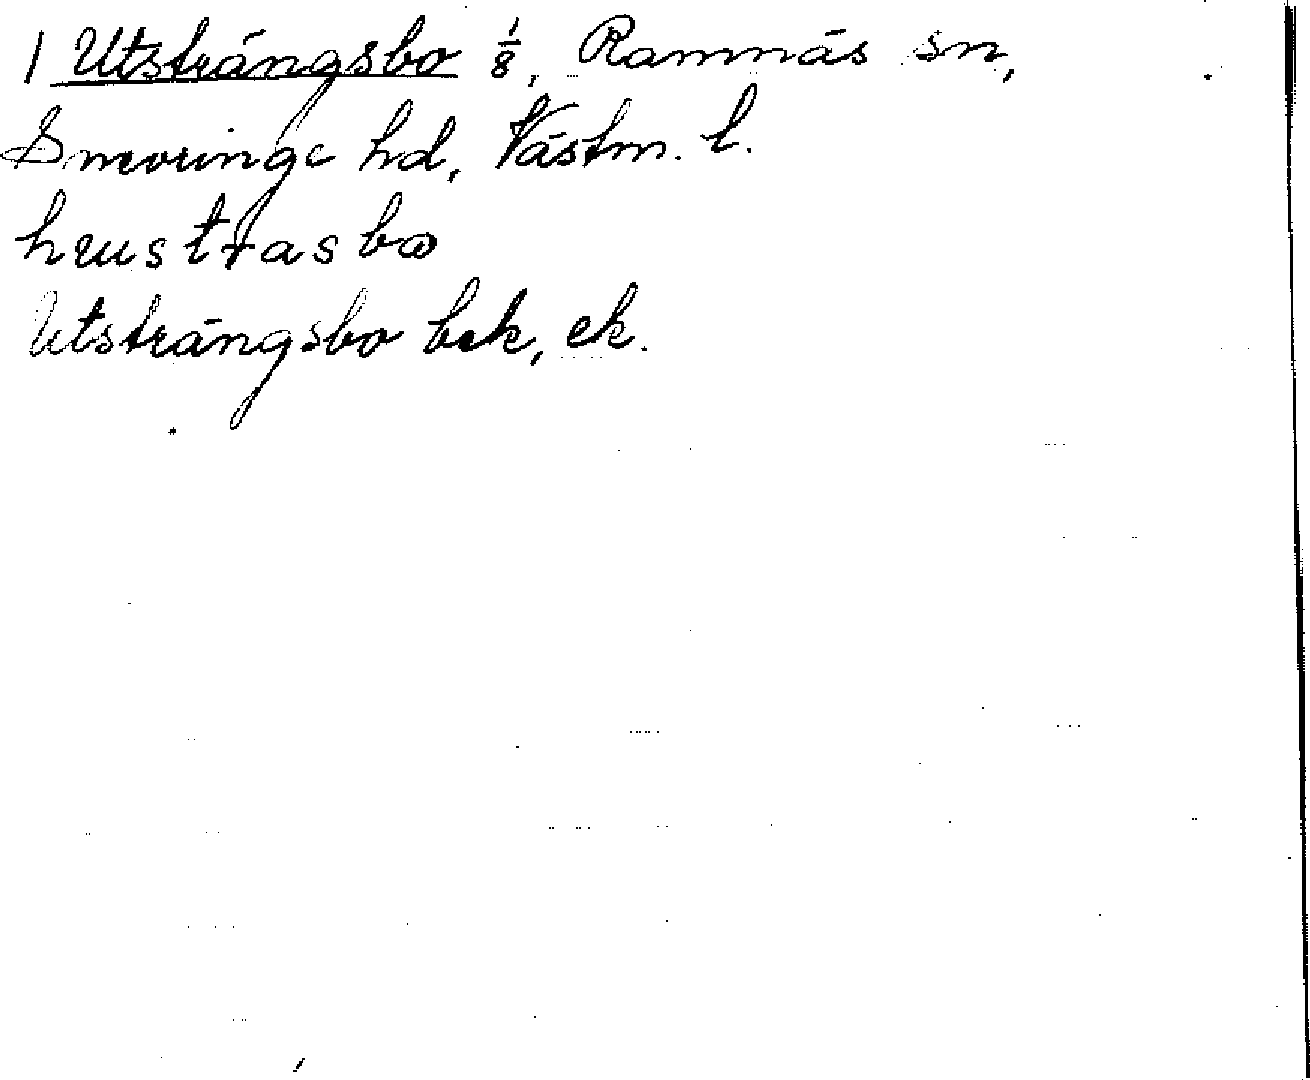 1 Utsträngsbo 1/8, Ramnäs sn,
Snevringe hd, Västm. l.
hustrasbo
Utsträngsbo bek, ek.